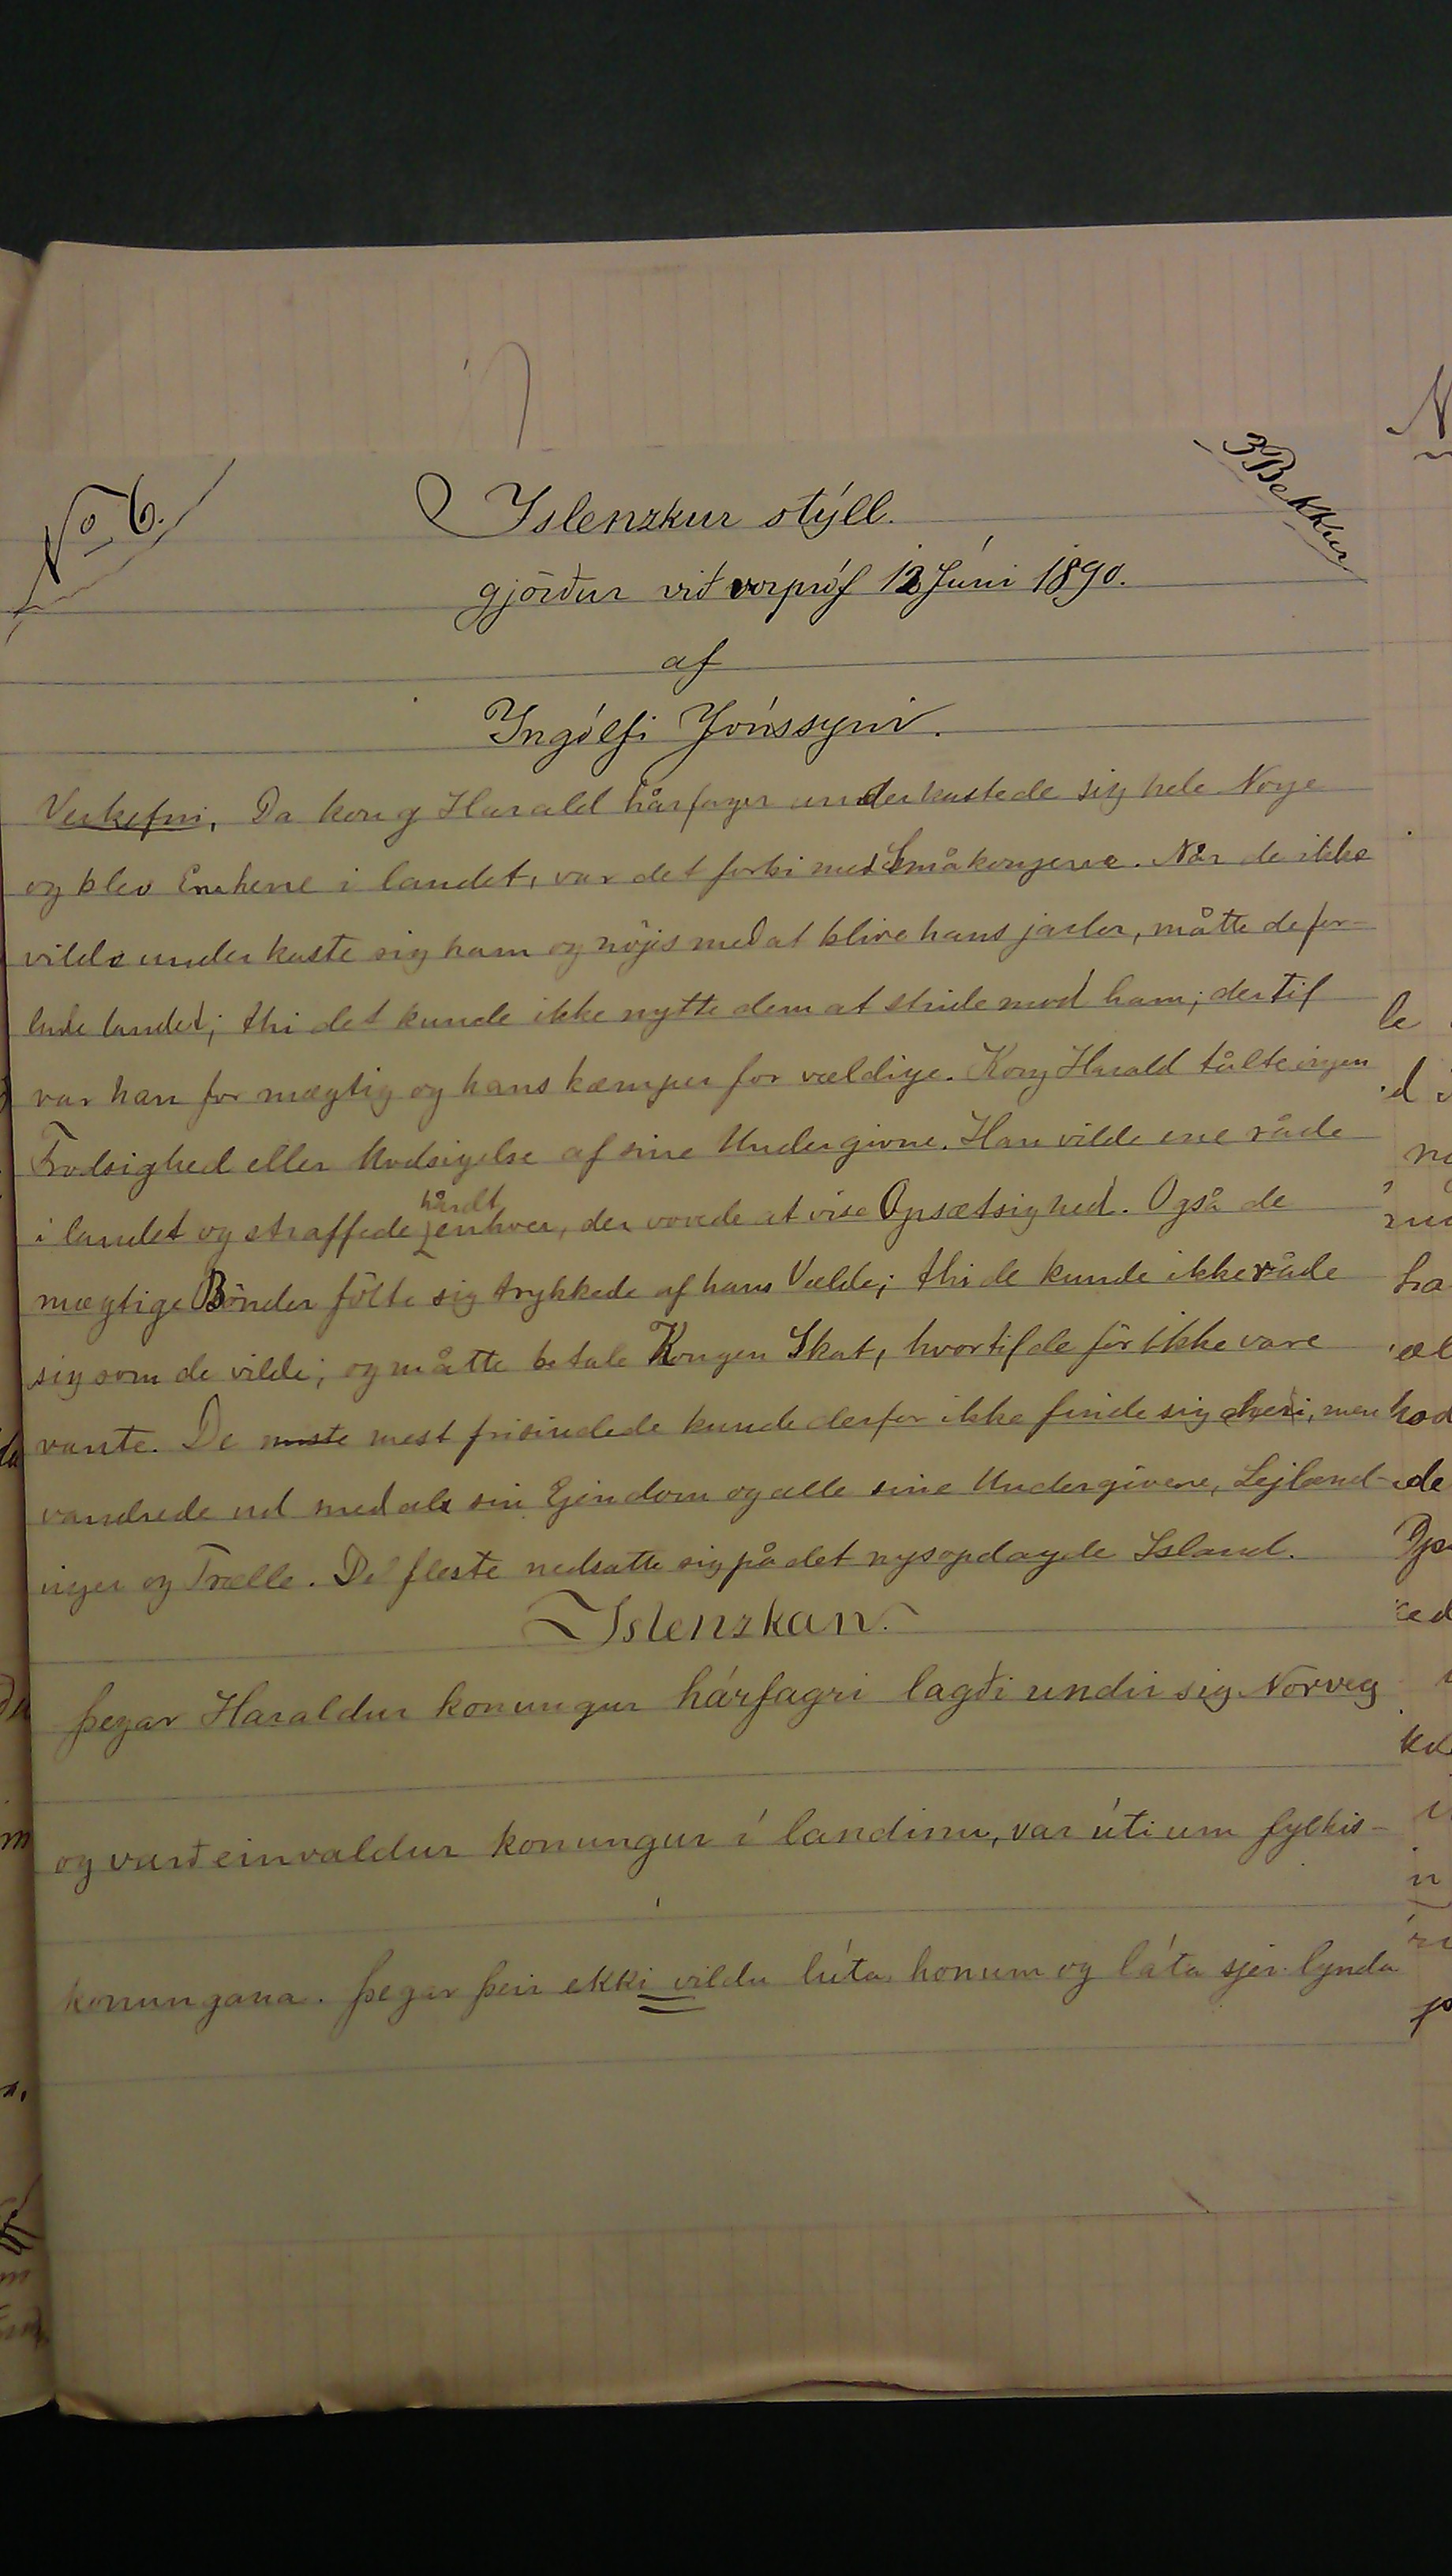 No 6.
3 Bekkur
Íslenzkur stýll.
gjörður við vorpróf 12 Júni 1890.
af
Ingólfi Jónssyni.
Verkefni. Da kong Harald hårfager underkastede sig hele Norge
og blev Eneherre i landet, var det forbi med Småkongerne. Når de ikke
vilde underkaste sig ham og nöjes med at blive hans jarler, måtte de for-
lade landet; thi det kunde ikke nytte dem at stride mod ham; dertil
var han for mægtig og hans kæmper for vældige. Kong Harald tålte ingen
Trodsighed eller Modsigelse af sine Undergivne. Han vilde ene råde
i landet og straffede hårdt enhver, der vovede at vise Opsætsighed. Også de
mægtige Bönder fölte sig trykkede af hans Vælde; thi de kunde ikke råde
sig som de vilde; og måtte betale Kongen Skat, hvortil de för ikke vare
vante. De meste mest frisindede kunde derfor ikke finde sig heri, men
vandrede ud med al sin Ejendom og alle sine Undergivne, Lejlænd-
inger og Trælle. De fleste nedsatte sig på det nysopdagede Island.
Islenzkan.
Þegar Haraldur konungur hárfagri lagði undir sig Norveg
og varð einvaldur konungur í landinu, var úti um fylkis-
konungana. Þegar þeir ekki vildu lúta honum og láta sjer lynda